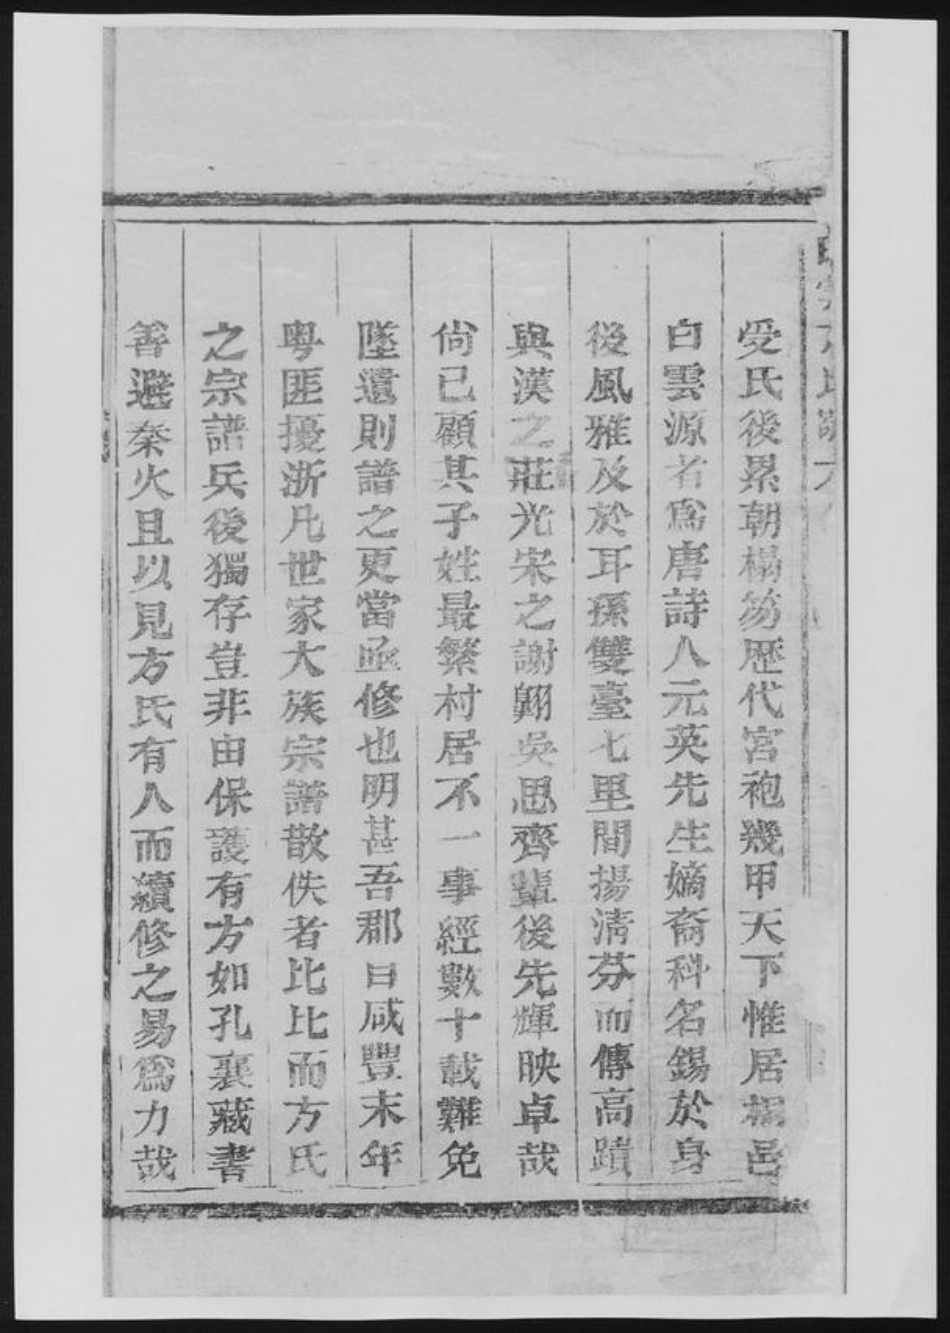 受氏後累朝榻笏歴代宮袍幾甲天下惟居桐邑
白雲源者爲唐詩人元英先生嫡裔科名錫於身
後風雅及於耳孫雙臺七里間揚清芬而傳高蹟
與漢之莊光宋之謝翺吳思齊輩後先輝映卓哉
尙已顧其子姓最繁村居不一事經數十載難免
墜遺則譜之更當亟修也明甚吾郡自咸豐末年
粤匪擾浙凡世家大族宗譜散佚者比比而方氏
之宗譜兵後獨存豈非由保護有方如孔襄藏書
善避秦火且以見方氏有人而續修之易爲力哉